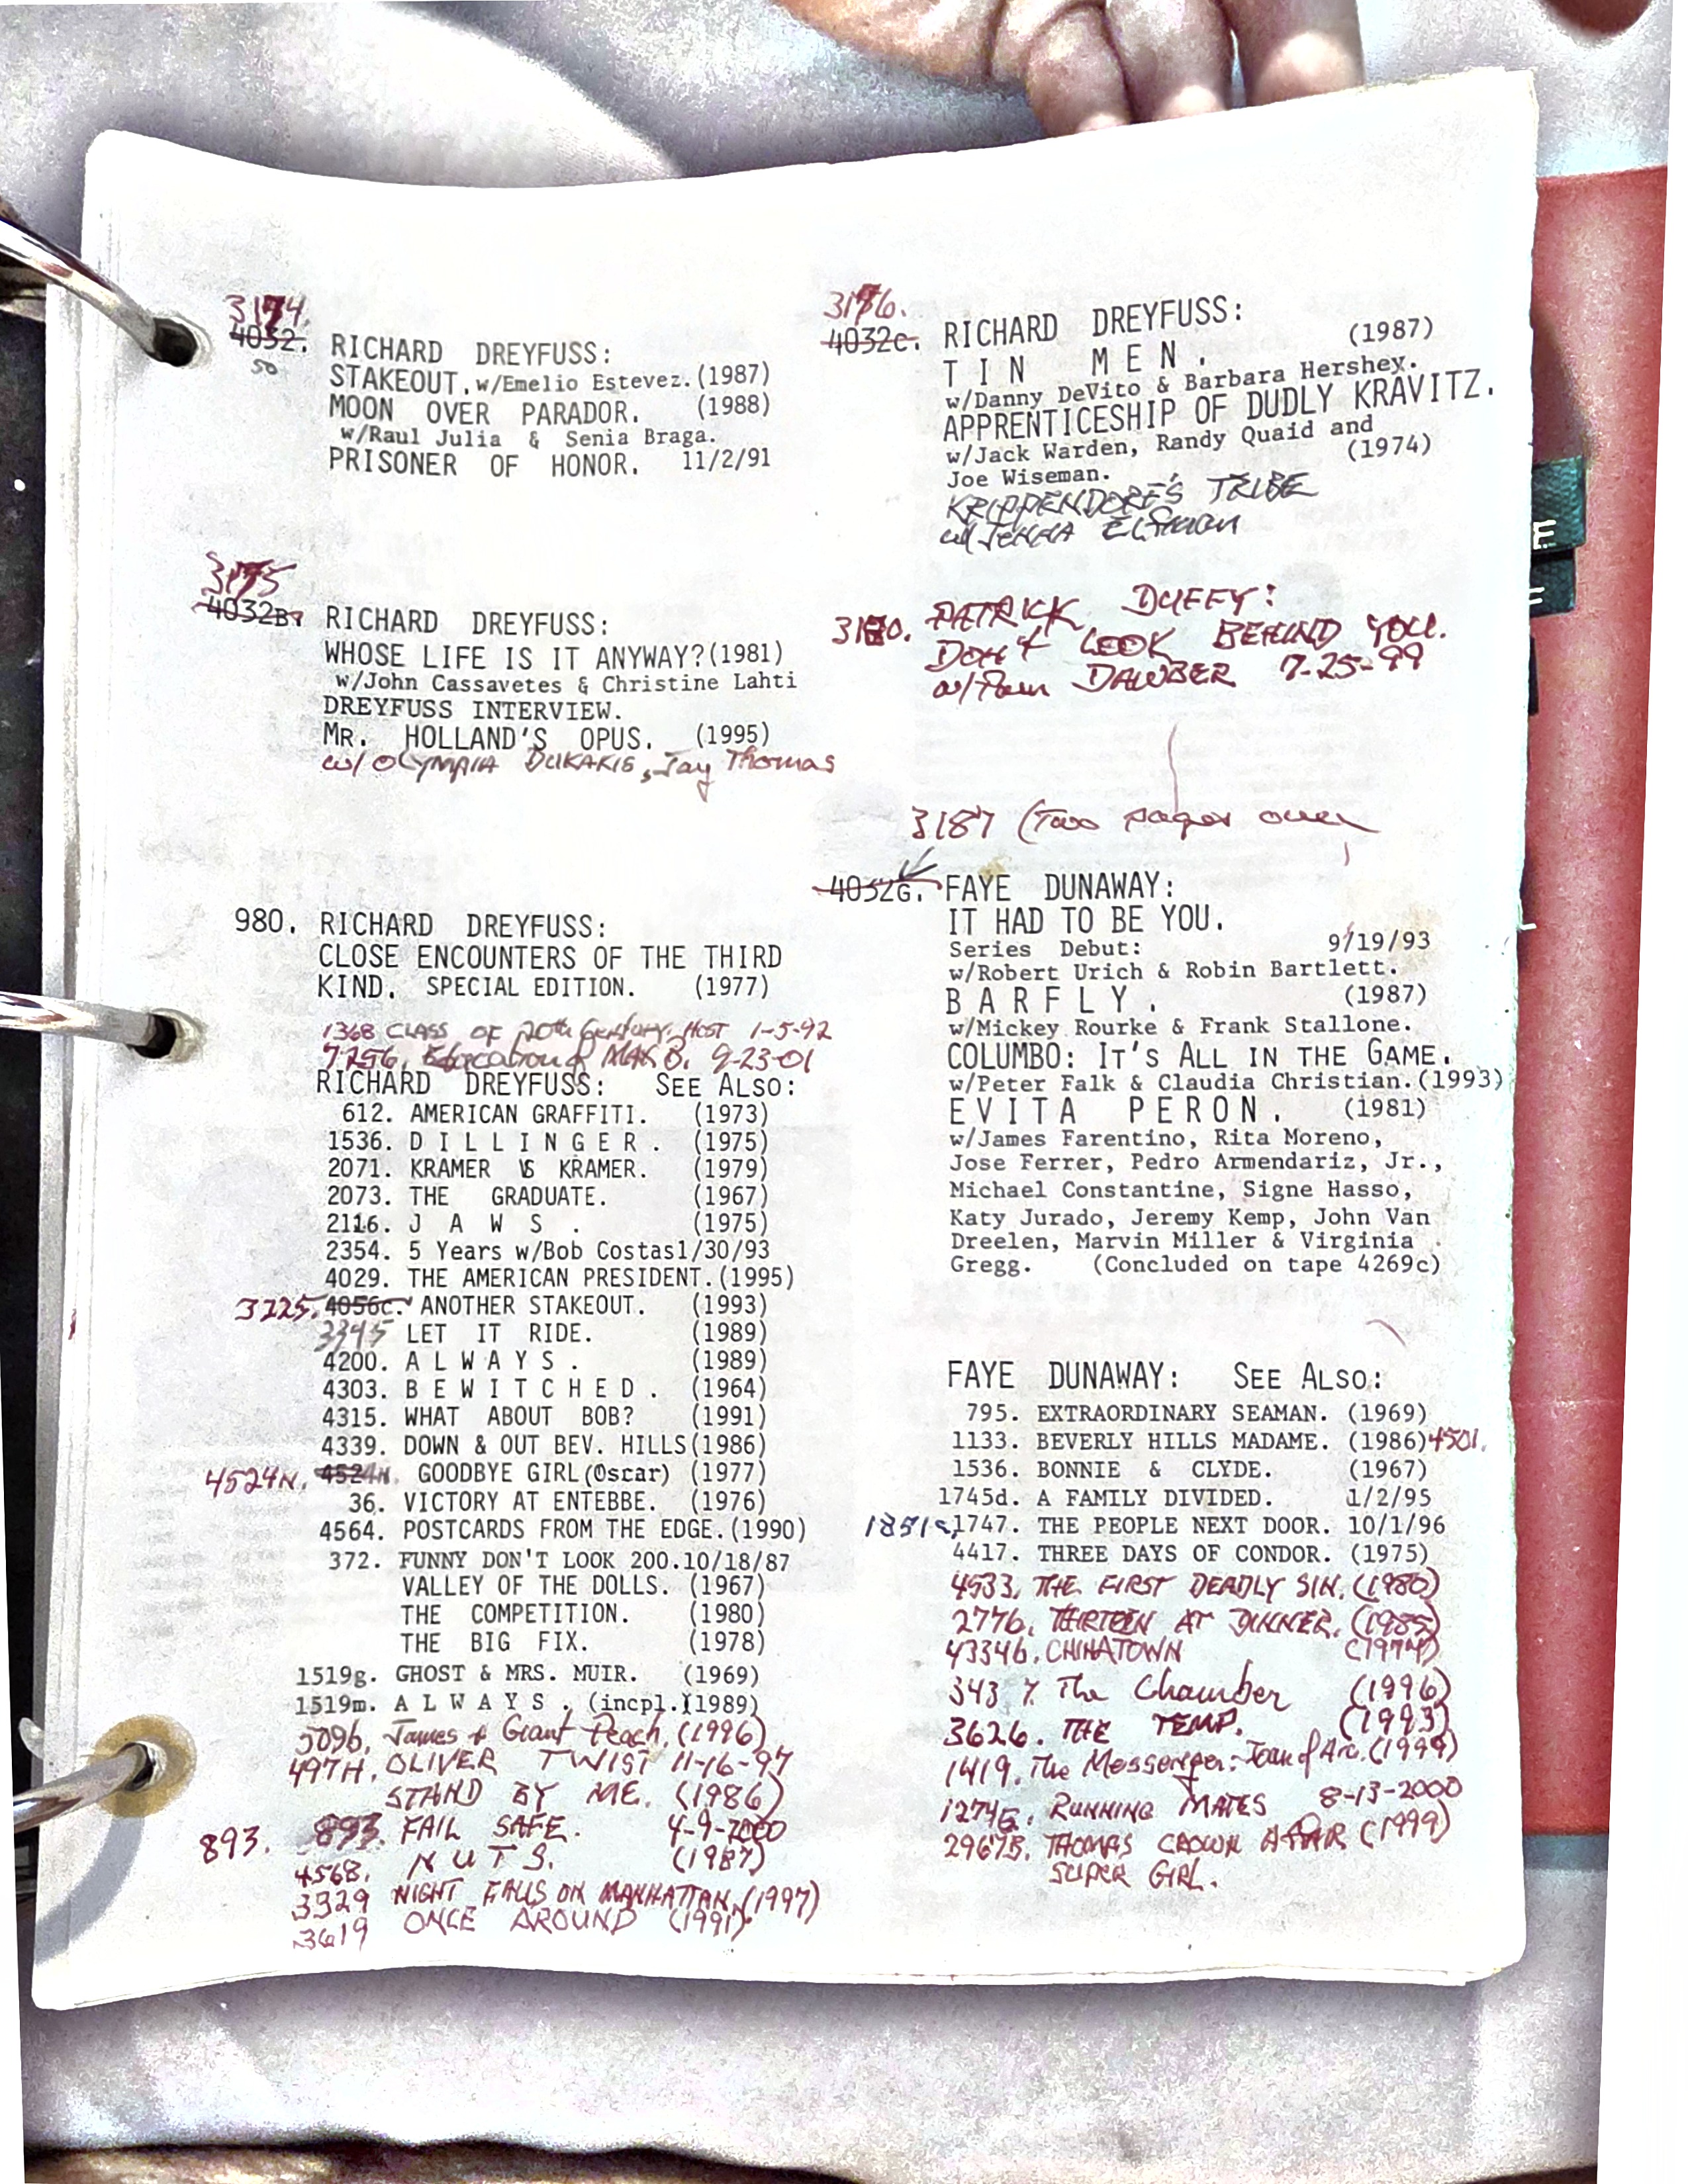 3174.
4032.
50
RICHARD DREYFUSS:
STAKEOUT. w/Emelio Estevez. (1987)
MOON OVER PARADOR. (1988)
w/Raul Julia & Senia Braga.
PRISONER OF HONOR. 11/2/91
3175
4032B.
RICHARD DREYFUSS:
WHOSE LIFE IS IT ANYWAY?(1981)
w/John Cassavetes & Christine Lahti
DREYFUSS INTERVIEW.
MR. HOLLAND'S OPUS. (1995)
w/ OLYMPIA DUKAKIS, Jay Thomas
980. RICHARD DREYFUSS:
CLOSE ENCOUNTERS OF THE THIRD
KIND. SPECIAL EDITION. (1977)
1368 CLASS OF 20th Century, HOST 1-5-92
7256. Education of MAX B. 9-23-01
RICHARD DREYFUSS: SEE ALSO:
612. AMERICAN GRAFFITI. (1973)
1536. D I L L I N G E R . (1975)
2071. KRAMER VS KRAMER. (1979)
2073. THE GRADUATE. (1967)
2116. J A W S . (1975)
2354. 5 Years w/Bob Costas1/30/93
4029. THE AMERICAN PRESIDENT.(1995)
3225. 4056c. ANOTHER STAKEOUT. (1993)
3345 LET IT RIDE. (1989)
4200. A L W A Y S . (1989)
4303. B E W I T C H E D . (1964)
4315. WHAT ABOUT BOB? (1991)
4339. DOWN & OUT BEV. HILLS(1986)
4524N. 4524N. GOODBYE GIRL(Oscar) (1977)
36. VICTORY AT ENTEBBE. (1976)
4564. POSTCARDS FROM THE EDGE.(1990)
372. FUNNY DON'T LOOK 200.10/18/87
VALLEY OF THE DOLLS. (1967)
THE COMPETITION. (1980)
THE BIG FIX. (1978)
1519g. GHOST & MRS. MUIR. (1969)
1519m. A L W A Y S . (incpl.)(1989)
509b. James & Giant Peach. (1996)
497H. OLIVER TWIST 11-16-97
STAND BY ME. (1986)
893. 893. FAIL SAFE. 4-9-2000
4568. N U T S. (1987)
3329 NIGHT FALLS ON MANHATTAN. (1997)
3619 ONCE AROUND (1991).
3176.
4032c. RICHARD DREYFUSS:
T I N M E N . (1987)
w/Danny DeVito & Barbara Hershey.
APPRENTICESHIP OF DUDLY KRAVITZ.
w/Jack Warden, Randy Quaid and
Joe Wiseman. (1974)
KRIPPENDORF'S TRIBE
w/ JENNA Elfman
3180. PATRICK DUFFY:
Don't LOOK BEHIND YOU.
w/Pam DAWBER 7-25-99
3187 (Two pages over
4032G. FAYE DUNAWAY:
IT HAD TO BE YOU.
Series Debut: 9/19/93
w/Robert Urich & Robin Bartlett.
B A R F L Y . (1987)
w/Mickey Rourke & Frank Stallone.
COLUMBO: IT'S ALL IN THE GAME.
w/Peter Falk & Claudia Christian.(1993)
E V I T A P E R O N . (1981)
w/James Farentino, Rita Moreno,
Jose Ferrer, Pedro Armendariz, Jr.,
Michael Constantine, Signe Hasso,
Katy Jurado, Jeremy Kemp, John Van
Dreelen, Marvin Miller & Virginia
Gregg. (Concluded on tape 4269c)
FAYE DUNAWAY: SEE ALSO:
795. EXTRAORDINARY SEAMAN. (1969)
1133. BEVERLY HILLS MADAME. (1986)4501.
1536. BONNIE & CLYDE. (1967)
1745d. A FAMILY DIVIDED. 1/2/95
1851c 1747. THE PEOPLE NEXT DOOR. 10/1/96
4417. THREE DAYS OF CONDOR. (1975)
4533. THE FIRST DEADLY SIN. (1980)
2776. THIRTEEN AT DINNER. (1985)
4334b. CHINATOWN (1974)
3437. The Chamber (1996)
3626. THE TEMP. (1993)
1419. The Messenger: Joan of Arc. (1999)
1274G. RUNNING MATES 8-13-2000
2967B. THOMAS CROWN AFFAIR (1999)
SUPER GIRL.
E
F